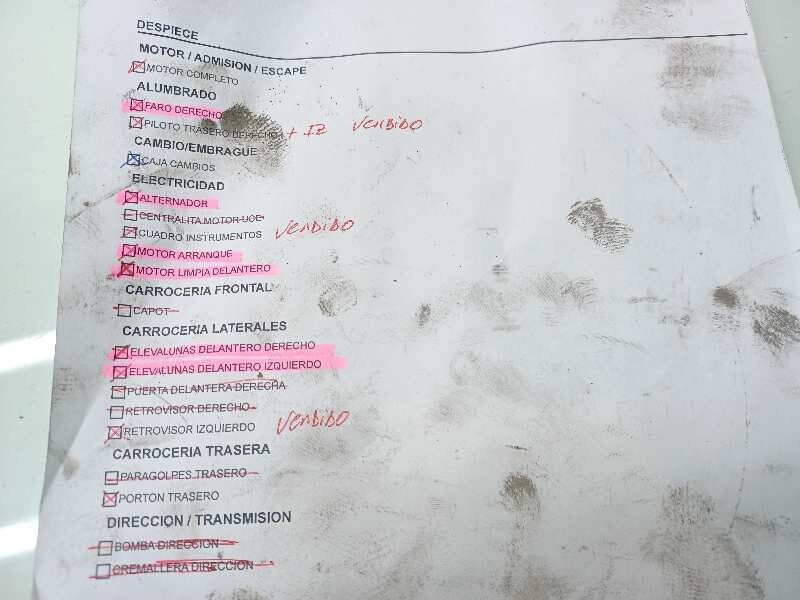 DESPIECE
MOTOR / ADMISION / ESCAPE
MOTOR COMPLETO
ALUMBRADO
FARO DERECHO
PILOTO TRASERO DERECHO + IZ VENDIDO
CAMBIO/EMBRAGUE
CAJA CAMBIOS
ELECTRICIDAD
ALTERNADOR
CENTRALITA MOTOR UCE
CUADRO INSTRUMENTOS VENDIDO
MOTOR ARRANQUE
MOTOR LIMPIA DELANTERO
CARROCERIA FRONTAL
CAPOT
CARROCERIA LATERALES
ELEVALUNAS DELANTERO DERECHO
ELEVALUNAS DELANTERO IZQUIERDO
PUERTA DELANTERA DERECHA
RETROVISOR DERECHO
RETROVISOR IZQUIERDO VENDIDO
CARROCERIA TRASERA
PARAGOLPES TRASERO
PORTON TRASERO
DIRECCION / TRANSMISION
BOMBA DIRECCION
CREMALLERA DIRECCION